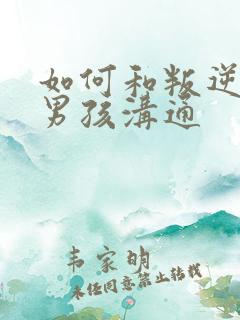 如何和叛逆
男孩溝通
韦家明
未经同意禁止转载